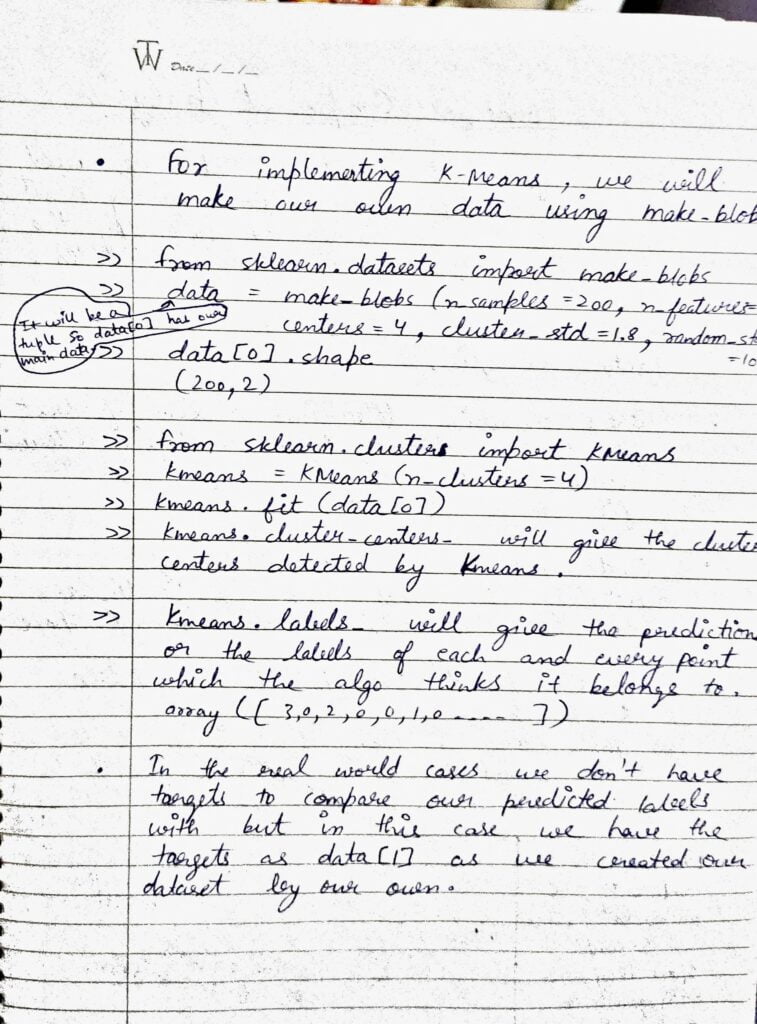 TW Date _/_/_
• For implementing K-Means, we will
make our own data using make-blob
>> from sklearn.datasets import make-blobs
>> data = make-blobs (n samples = 200, n-features=
centers = 4, cluster-std = 1.8, random-st
= 10
It will be a
tuple so data[0] has our
main data
>> data [0] . shape
(200, 2)
>> from sklearn.clusters import KMeans
>> kmeans = KMeans (n-clusters = 4)
>> kmeans. fit (data [0])
>> kmeans. cluster-centers- will give the cluste
centers detected by Kmeans.
>> Kmeans. labels- will give the prediction
or the labels of each and every point
which the algo thinks it belongs to.
array ([ 3,0,2,0,0,1,0 ..... ])
• In the real world cases we don't have
targets to compare our predicted labels
with but in this case we have the
targets as data [1] as we created our
dataset by our own.